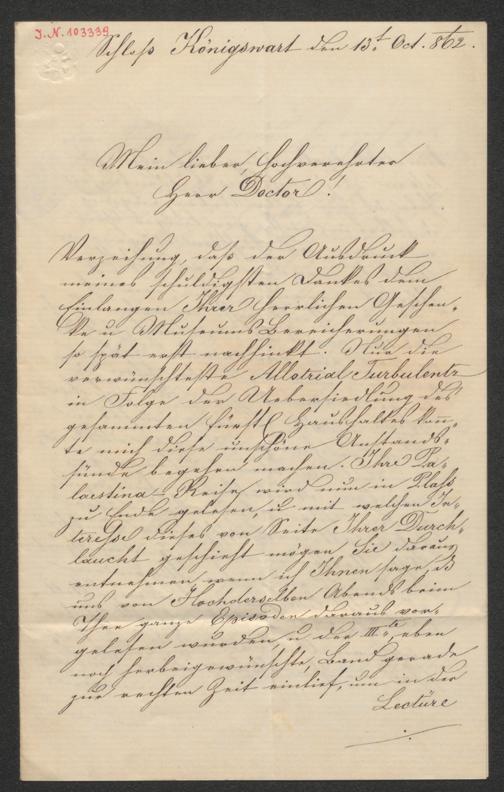 J. N. 103339
Schloß Königswart den 13t. Oct. 862.
Mein lieber, hochverehrter
Herr Doctor!
Verzeihung, daß der Ausdruck
meines schuldigsten Dankes dem
Einlangen Ihrer herrlichen Geschen-
ke u Museums Bereicherungen
so spät erst nachhinkt. Nur die
verwünschteste Allotrial Turbulentz
in Folge der Uebersiedlung des
gesammten fürstl Haushaltes konn-
te mich diese unschöne Anstands-
sünde begehen machen. Ihre Pa-
laestina Reise wird nun in Plass
zu Ende gelesen u mit welchen In-
teresse dieses von Seite Ihrer Durch-
laucht geschieht mögen Sie daraus
entnehmen, wenn ich Ihnen sage, daß
uns von Hochderselben Abends beim
Thee ganze Episoden daraus vor-
gelesen wurden, u der IIIte, eben
noch herbeigewünschte, Band gerade
zur rechten Zeit einlief, um in der
Lectüre